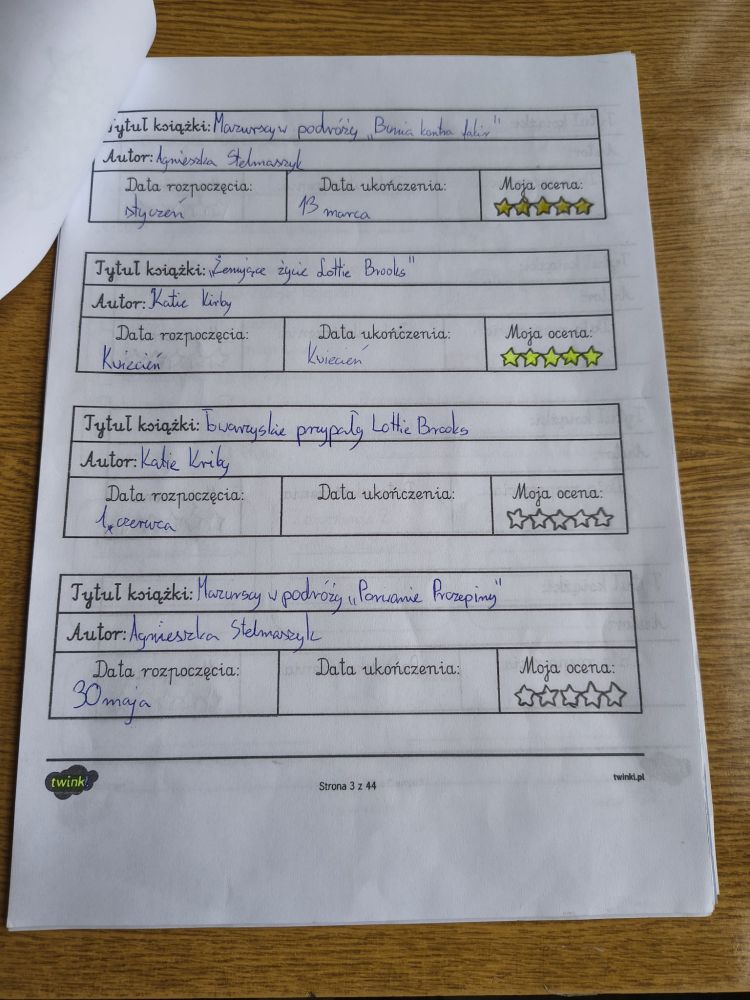 Tytuł książki: Mazurscy w podróży „Bunia kontra fakir"
Autor: Agnieszka Stelmaszyk
Data rozpoczęcia: Data ukończenia: Moja ocena:
styczeń 13 marca
Tytuł książki: „Żenujące życie Lottie Brooks"
Autor: Katie Kirby
Data rozpoczęcia: Data ukończenia: Moja ocena:
Kwiecień Kwiecień
Tytuł książki: Towarzyskie przypały Lottie Brooks
Autor: Katie Kriby
Data rozpoczęcia: Data ukończenia: Moja ocena:
1. czerwca
Tytuł książki: Mazurscy w podróży „Porwanie Prozerpiny"
Autor: Agnieszka Stelmaszyk
Data rozpoczęcia: Data ukończenia: Moja ocena:
30 maja
twinkl
Strona 3 z 44
twinkl.pl